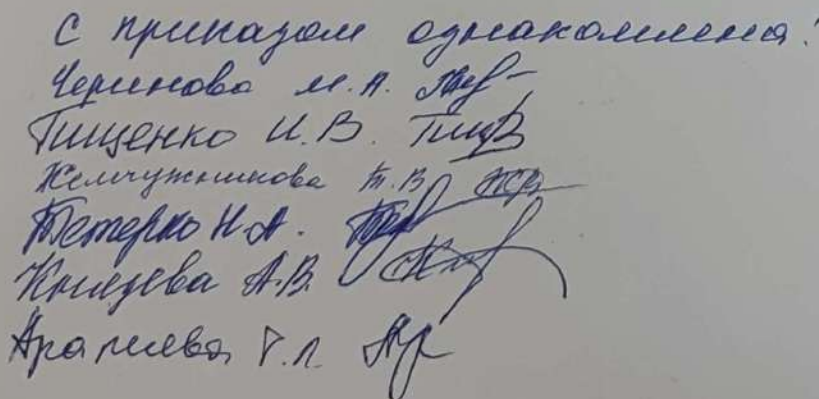 С приказом ознакомлена:
Черинова М.А.
Тищенко И.В. Тищ
Жемчужникова Т.В.
Тетерко Н.А.
Князева А.В.
Г.Л.